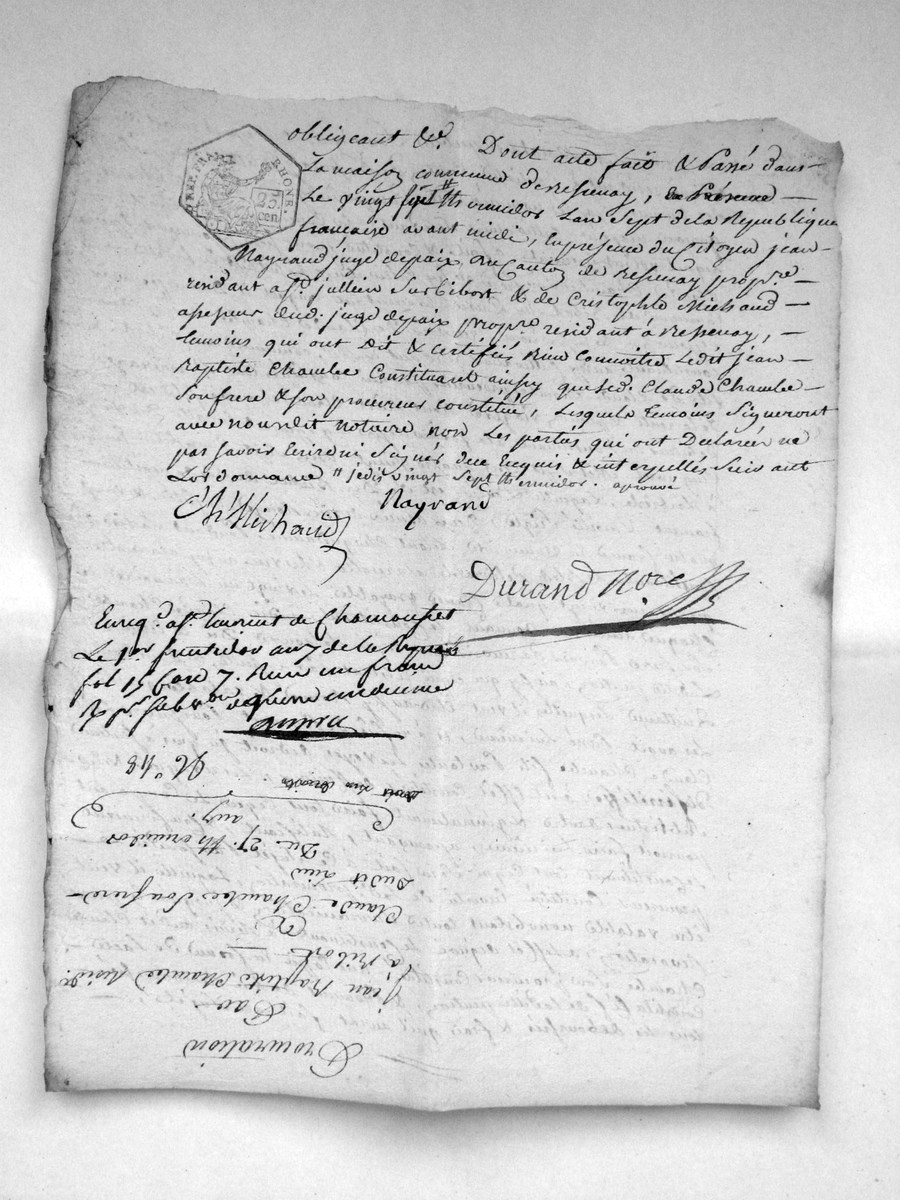 obligeant &c. Dont acte fait & Passé dans
La maison commune de Ressenay,
Le vingt sept thermidor Lan Sept de la Republique
francaise avant midi, En présence du Citoyen jean
Nayrand juge de paix du Canton de Ressenay prop.re
residant a St. jullien Sur bibost & de Cristophle Michaud
assesseur dud. juge de paix prop.re residant à Ressenay,
temoins qui ont dit & certifiés Bien connoitre Ledit jean
Baptiste Chambe Constituant ainsy que led. Claude Chambe
Son frere & son procureur constitué, Lesquels temoins Signeront
avec nousdit notaire non Les parties qui ont Declarées ne
pas savoir Ecrire ni Signer due Enquis & interpellés Suivant
Lordonnance " je dis vingt Sept thermidor. aprouvé
Chi Michaud
Nayrand
Durand Nore
Enreg. a St. Laurent de Chamousset
Le 1er fructidor an 7 de la
fol 15 Case 7. Reçu un franc
REP. FRA
RHONE.
25
cen
Procuration
Par
jean Baptiste Chambe
à Bibost
A
Claude Chambe Son frere
dudit Lieu
Du 27. thermidor
an 7.
N° 118